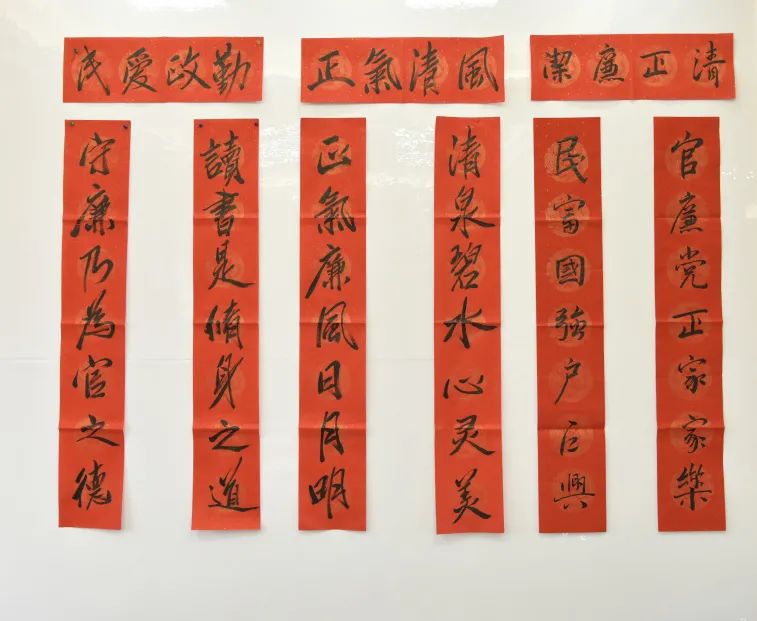 清正廉潔
官廉党正家家樂
民富國強户户興
風清氣正
清泉碧水心灵美
正氣廉風日月明
勤政愛民
讀書是脩身之道
守廉乃為官之德